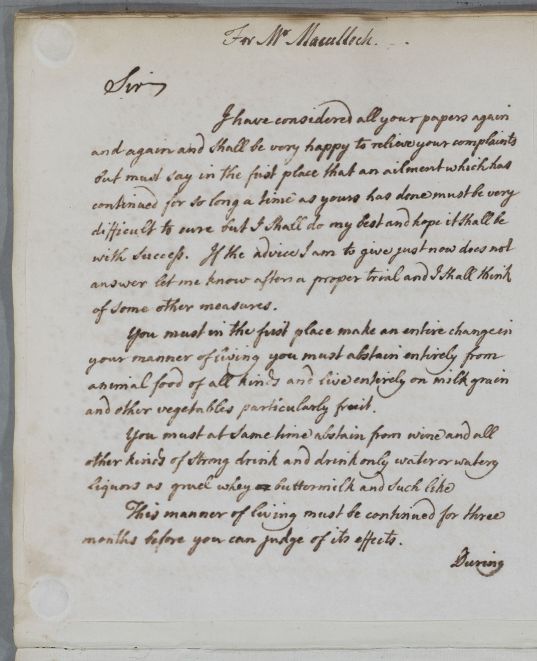 For Mr Maculloch.
Sir
I have considered all your papers again
and again and shall be very happy to relieve your complaints
but must say in the first place that an ailment which has
continued for so long a time as yours has done must be very
difficult to cure but I shall do my best and hope it shall be
with success. If the advice I am to give just now does not
answer let me know after a proper trial and I shall think
of some other measures.
You must in the first place make an entire change in
your manner of living you must abstain entirely from
animal food of all kinds and live entirely on milk grain
and other vegetables particularly fruit.
You must at same time abstain from wine and all
other kinds of strong drink and drink only water or watery
liquors as gruel whey buttermilk and such like
This manner of living must be continued for three
months before you can judge of its effects.
During